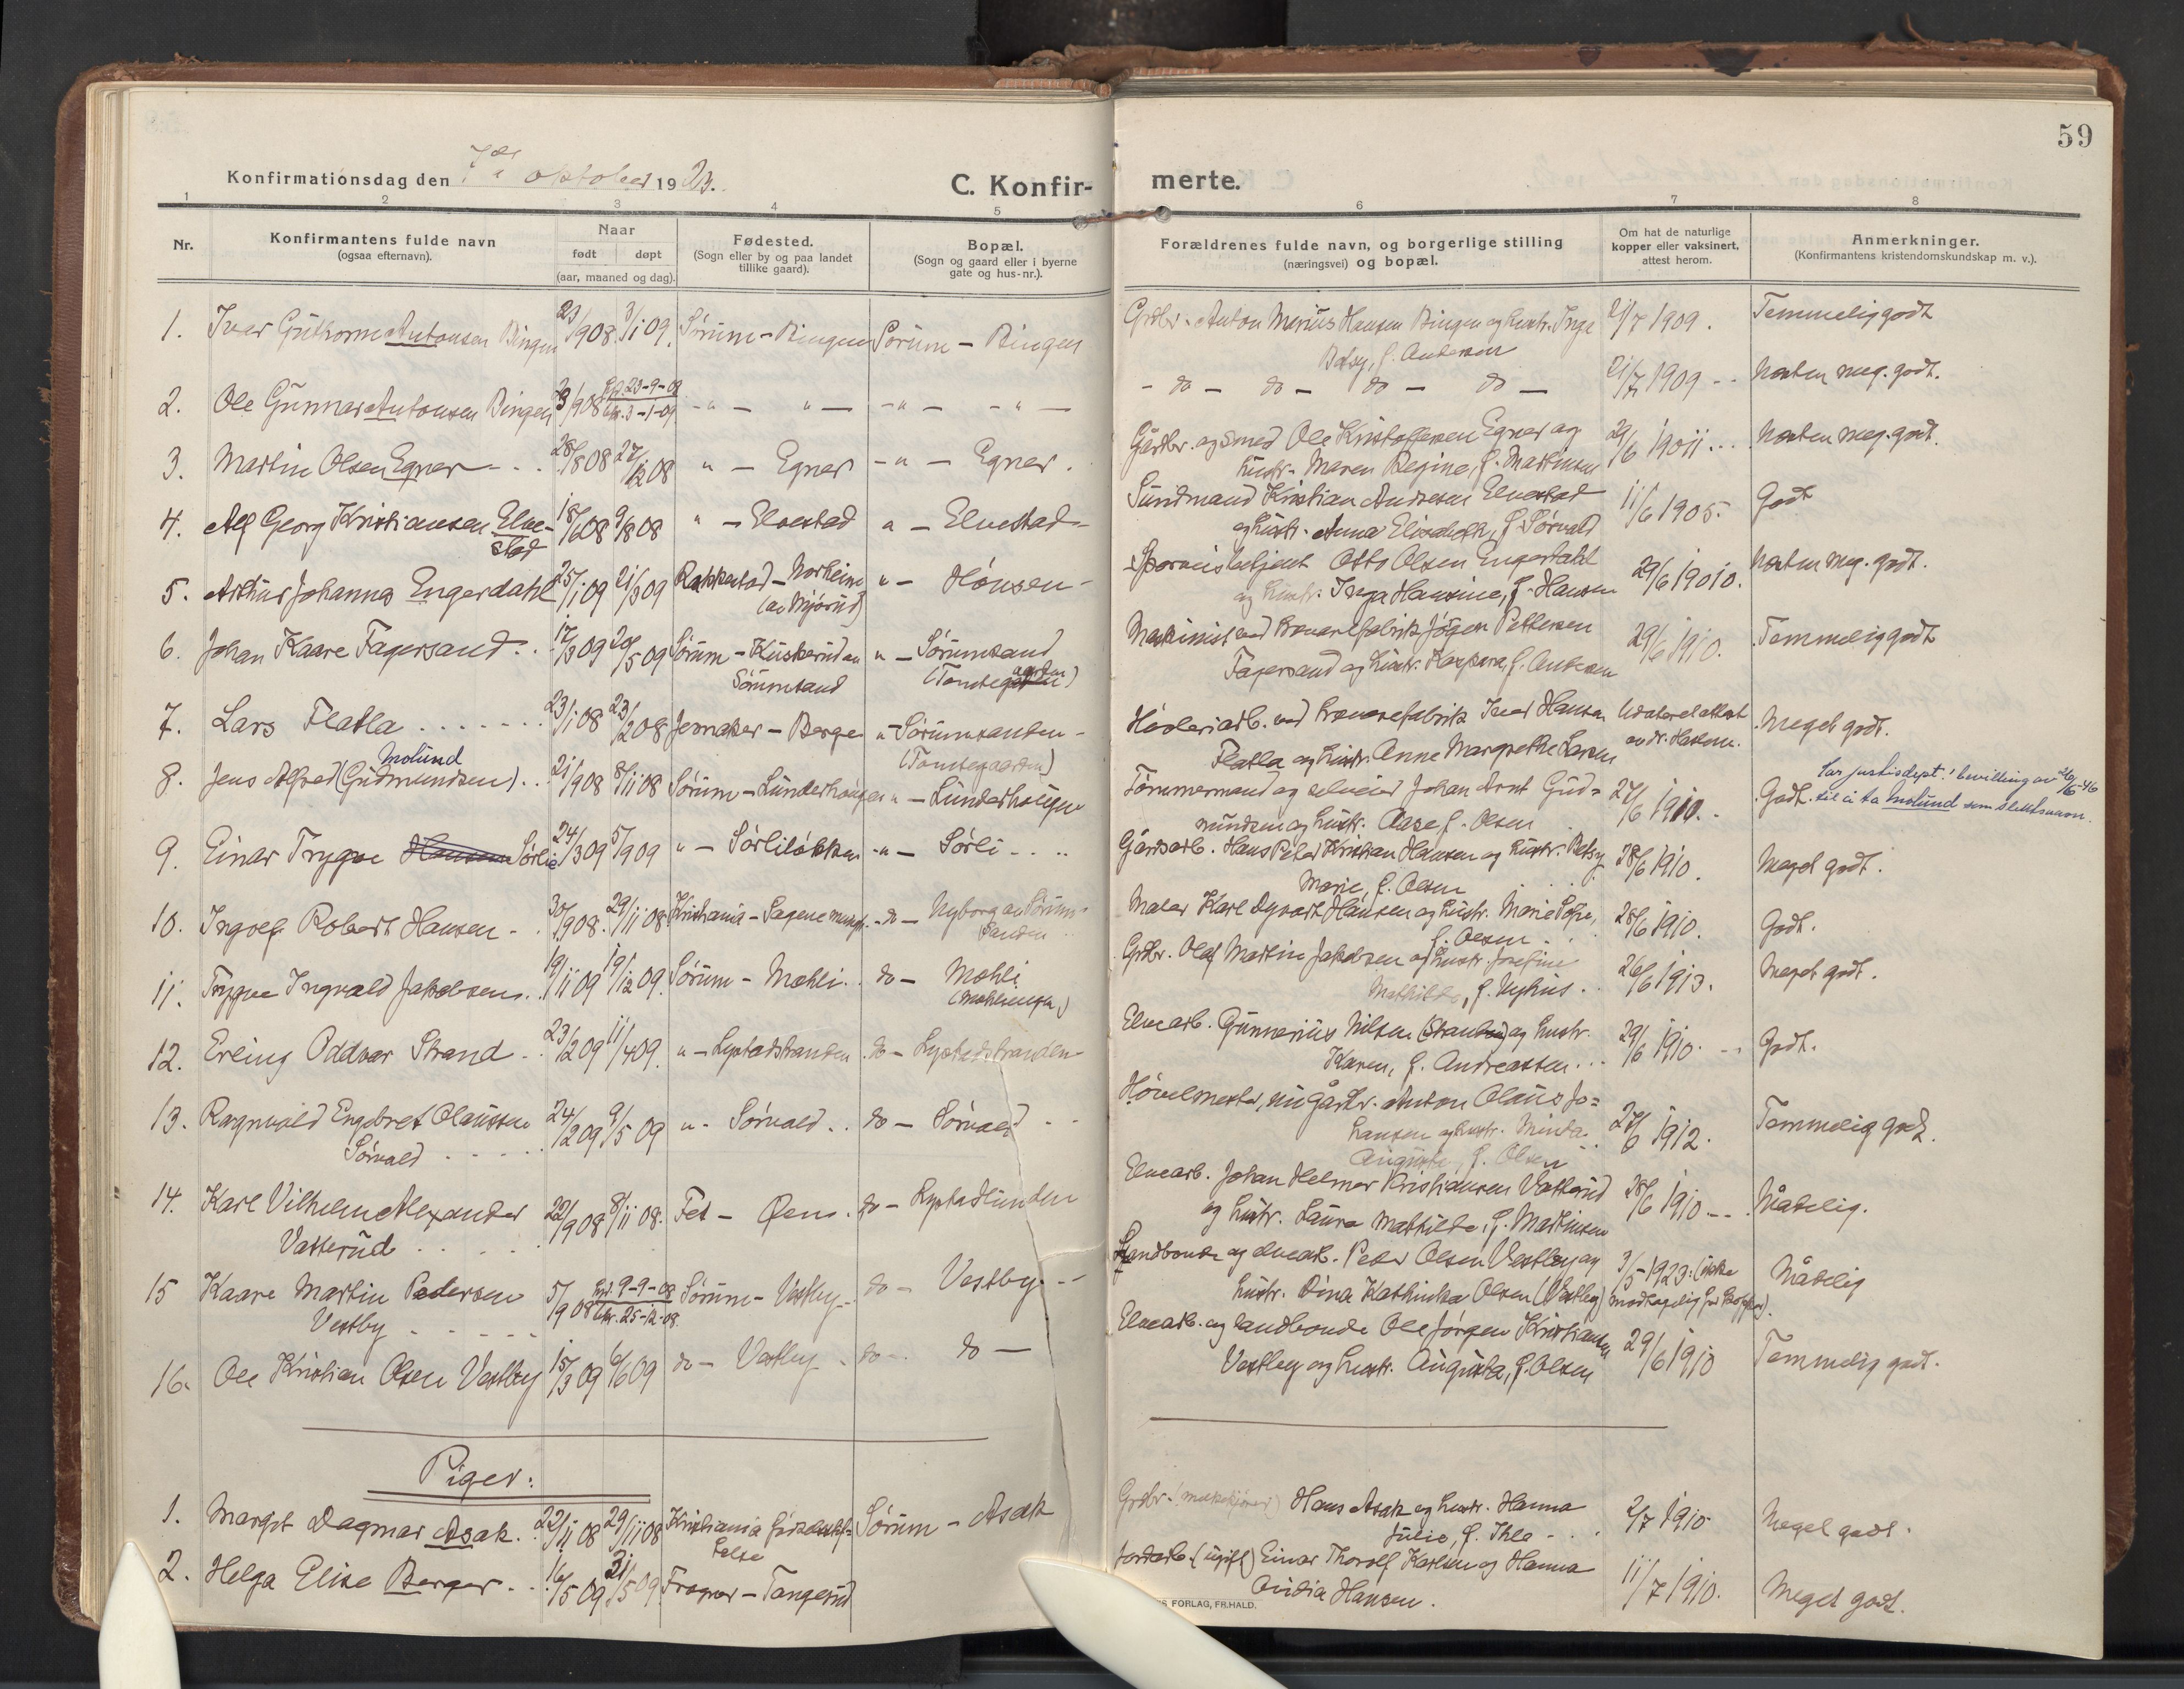 59
Konfirmationsdag den 7de oktober 1923.
C. Konfir- merte.
1 2 3 4 5 6 7 8
Nr.
Konfirmantens fulde navn
(ogsaa efternavn).
Naar
født døpt
(aar, maaned og dag).
Fødested.
(Sogn eller by og paa landet
tillike gaard).
Bopæl.
(Sogn og gaard eller i byerne
gate og hus-nr.).
Forældrenes fulde navn, og borgerlige stilling
(næringsvei) og bopæl.
Om hat de naturlige
kopper eller vaksinert,
attest herom.
Anmerkninger.
(Konfirmantens kristendomskundskap m. v.).
1. Ivar Guthorm Antonsen Bingen 23/9 08. 3/1 09. Sørum - Bingen Sørum - Bingen Grdbr. Anton Marius Hansen Bingen og hustr. Inga 21/7 1909. Temmelig godt
Betsy, f. Andersen
2. Ole Gunnar Antonsen Bingen 23/9 08 Hjd. 23-9-08 - " - " - - " - - " - - do - do - do - do - 21/7 1909 -- Næsten meg. godt.
Kir. 3-1-09
3. Martin Olsen Egner - . . 28/8 08 27/12 08 " - Egner - " - Egner. Gårdbr. og smed Ole Kristoffersen Egner og 29/6 1911... Næsten meg. godt.
hustr. Maren Regine, f. Martinsen
4. Alf Georg Kristiansen Elve- 18/6 08 9/8 08 " - Elvestad " - Elvestad - Sundmand Kristian Andresen Elvestad 11/6 1905. Godt
stad
og hustr. Anna Elisabeth, f. Sørvald
5. Arthur Johannes Engerdahl 25/1 09 21/3 09 Rakkestad - Norheim " - Hønsen - Sporveisbetjent Otto Olsen Engerdahl 29/6 1910. Næsten meg. godt.
(av Mjørud)
og hustr. Inga Hansine, f. Hansen
6. Johan Kaare Fagersand . . 17/3 09 20/5 09 Sørum - Kuskerud av " - Sørumsand Maskinist ved Brænselfabrik Jørgen Pettersen 29/6 1910. Temmelig godt
Sørumsand (Tomtegaarden)
Fagersand og hustr. Kaspara, f. Andersen
7. Lars Flatla . . . . . . . 23/1 08 23/2 08 Jevnaker - Berge " - Sørumsanden - Høvleriarb. ved Brænselfabrik Iver Hansen Udatert attest Meget godt.
(Tomtegaarden)
Flatla og hustr. Anne Margrethe Larsen av dr.
Molund
8. Jens Alfred (Gudmundsen) . . 21/9 08 8/11 08 Sørum - Lunderhaugen " - Lunderhaugen Tømmermand og selveier Johan Arnt Gud= 27/6 1910. - Godt.
Iar justisdept.s bevilling av 26/6-46
til å ta Molund som slektsnavn.
mundsen og hustr. Aase, f. Olsen
9. Einar Trygve Hansen Sørlie 24/3 09 5/9 09 " - Sørliløkken -"- Sørli - . . . Gårdsarb. Hans Peter Kristian Hansen og hustr. Betsy 28/6 1910. Meget godt.
Marie, f. Olsen
10. Ingolf Robert Hansen - . 30/9 08. 29/11 08. Kristiania - Sagene menigh. - do - Nyborg av Sørum- Maler Karl Dyvart Hansen og hustr. Marie Sofie, 28/6 1910. Godt.
sanden . .
f. Olsen . .
11. Trygve Ingvald Jakobsen. . 19/11 09 19/12 09. Sørum - Mæhli. . do - Mæhli Grdbr. Olaf Martin Jakobsen og hustr. Josefine 26/6 1913. Meget godt.
Mathilde, f. Nyhus . .
12. Erling Oddvar Strand - . . 23/2 09 11/4 09. " - Lystadstranden do - Lystadstranden Elvearb. Gunnerius Nilsen (Stranden) og hustr. 29/6 1910. -- Godt.
Karen, f. Andreassen . . .
13. Ragnvald Engebret Olaussen 24/2 09 9/5 09 " - Sørvald . . do - Sørvald - - Høvelmester, nu gårdbr. Anton Olaus Jo= 27/6 1912. Temmelig godt.
Sørvald . . . . .
hansen og hustr. Minda
Augusta, f. Olsen
14. Karl Vilhelm Alexander 22/9 08 8/11 08. Fet - Øen. . do - Lystadlunden Elvearb. Johan Helmer Kristiansen Vatterud 28/6 1910 -- Måtelig.
Vatterud . . . . .
og hustr. Laura Mathilde, f. Martinsen
15 Kaare Martin Pedersen 5/9 08 Hjd. 9-9-08 Sørum - Vestby - do - Vestby - - Strandbonde og elvearb. Peder Olsen Vestby og 3/5-1923: (ikke Måtelig
Vestby - - - - - Kir. 25-12-08.
hustr. Dina Kathinka Olsen (Vestby) modtagelig for kopper).
16. Ole Kristian Olsen Vestby 15/3 09 6/6 09 do - Vestby - do - do - Elvearb. og landbonde Ole Jørgen Kristiansen 29/6 1910 Temmelig godt.
Vestby og hustr. Augusta, f. Olsen
Piger:
1. Margit Dagmar Asak. . 22/11 08 29/11 08 Kristiania Sørum - Asak Grdbr. Hans Asak og hustr. Hanna 2/7 1910 Meget godt.
Julie, f. Ihle - . .
2. Helga Elise Berger. . . 16/5 09 31/5 09 Frogner - Tangerud Jordarb. (ugift) Einar Thorolf Karlsen og Hanna 11/7 1910. Meget godt.
Hansen.
S FORLAG, FR.HALD.